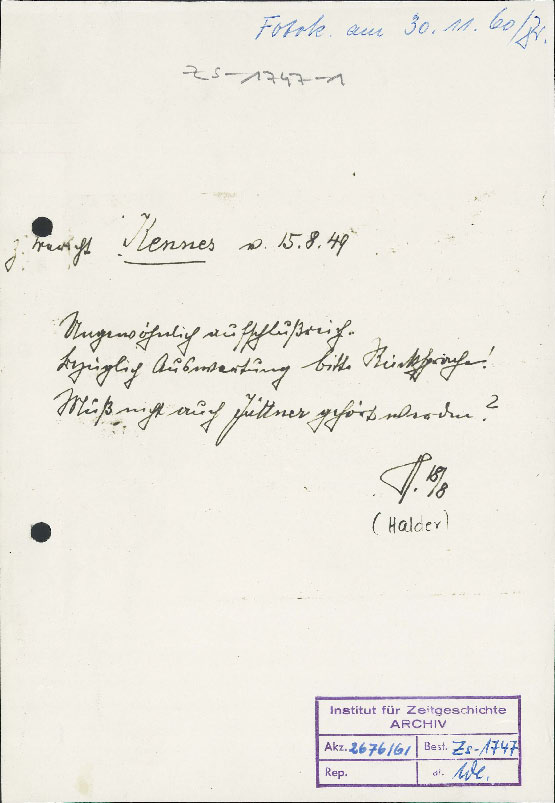 Fotok. am 30.11.60/
ZS-1747-1
z. Bericht Kennes v. 15.8.49
Ungewöhnlich aufschlußreich.
Bezüglich Auswertung bitte Rücksprache!
Muß nicht auch Jüttner gehört werden?
H. 18/8
(Halder)
Institut für Zeitgeschichte
ARCHIV
Akz. 2676/61 Best. Zs-1747
Rep.